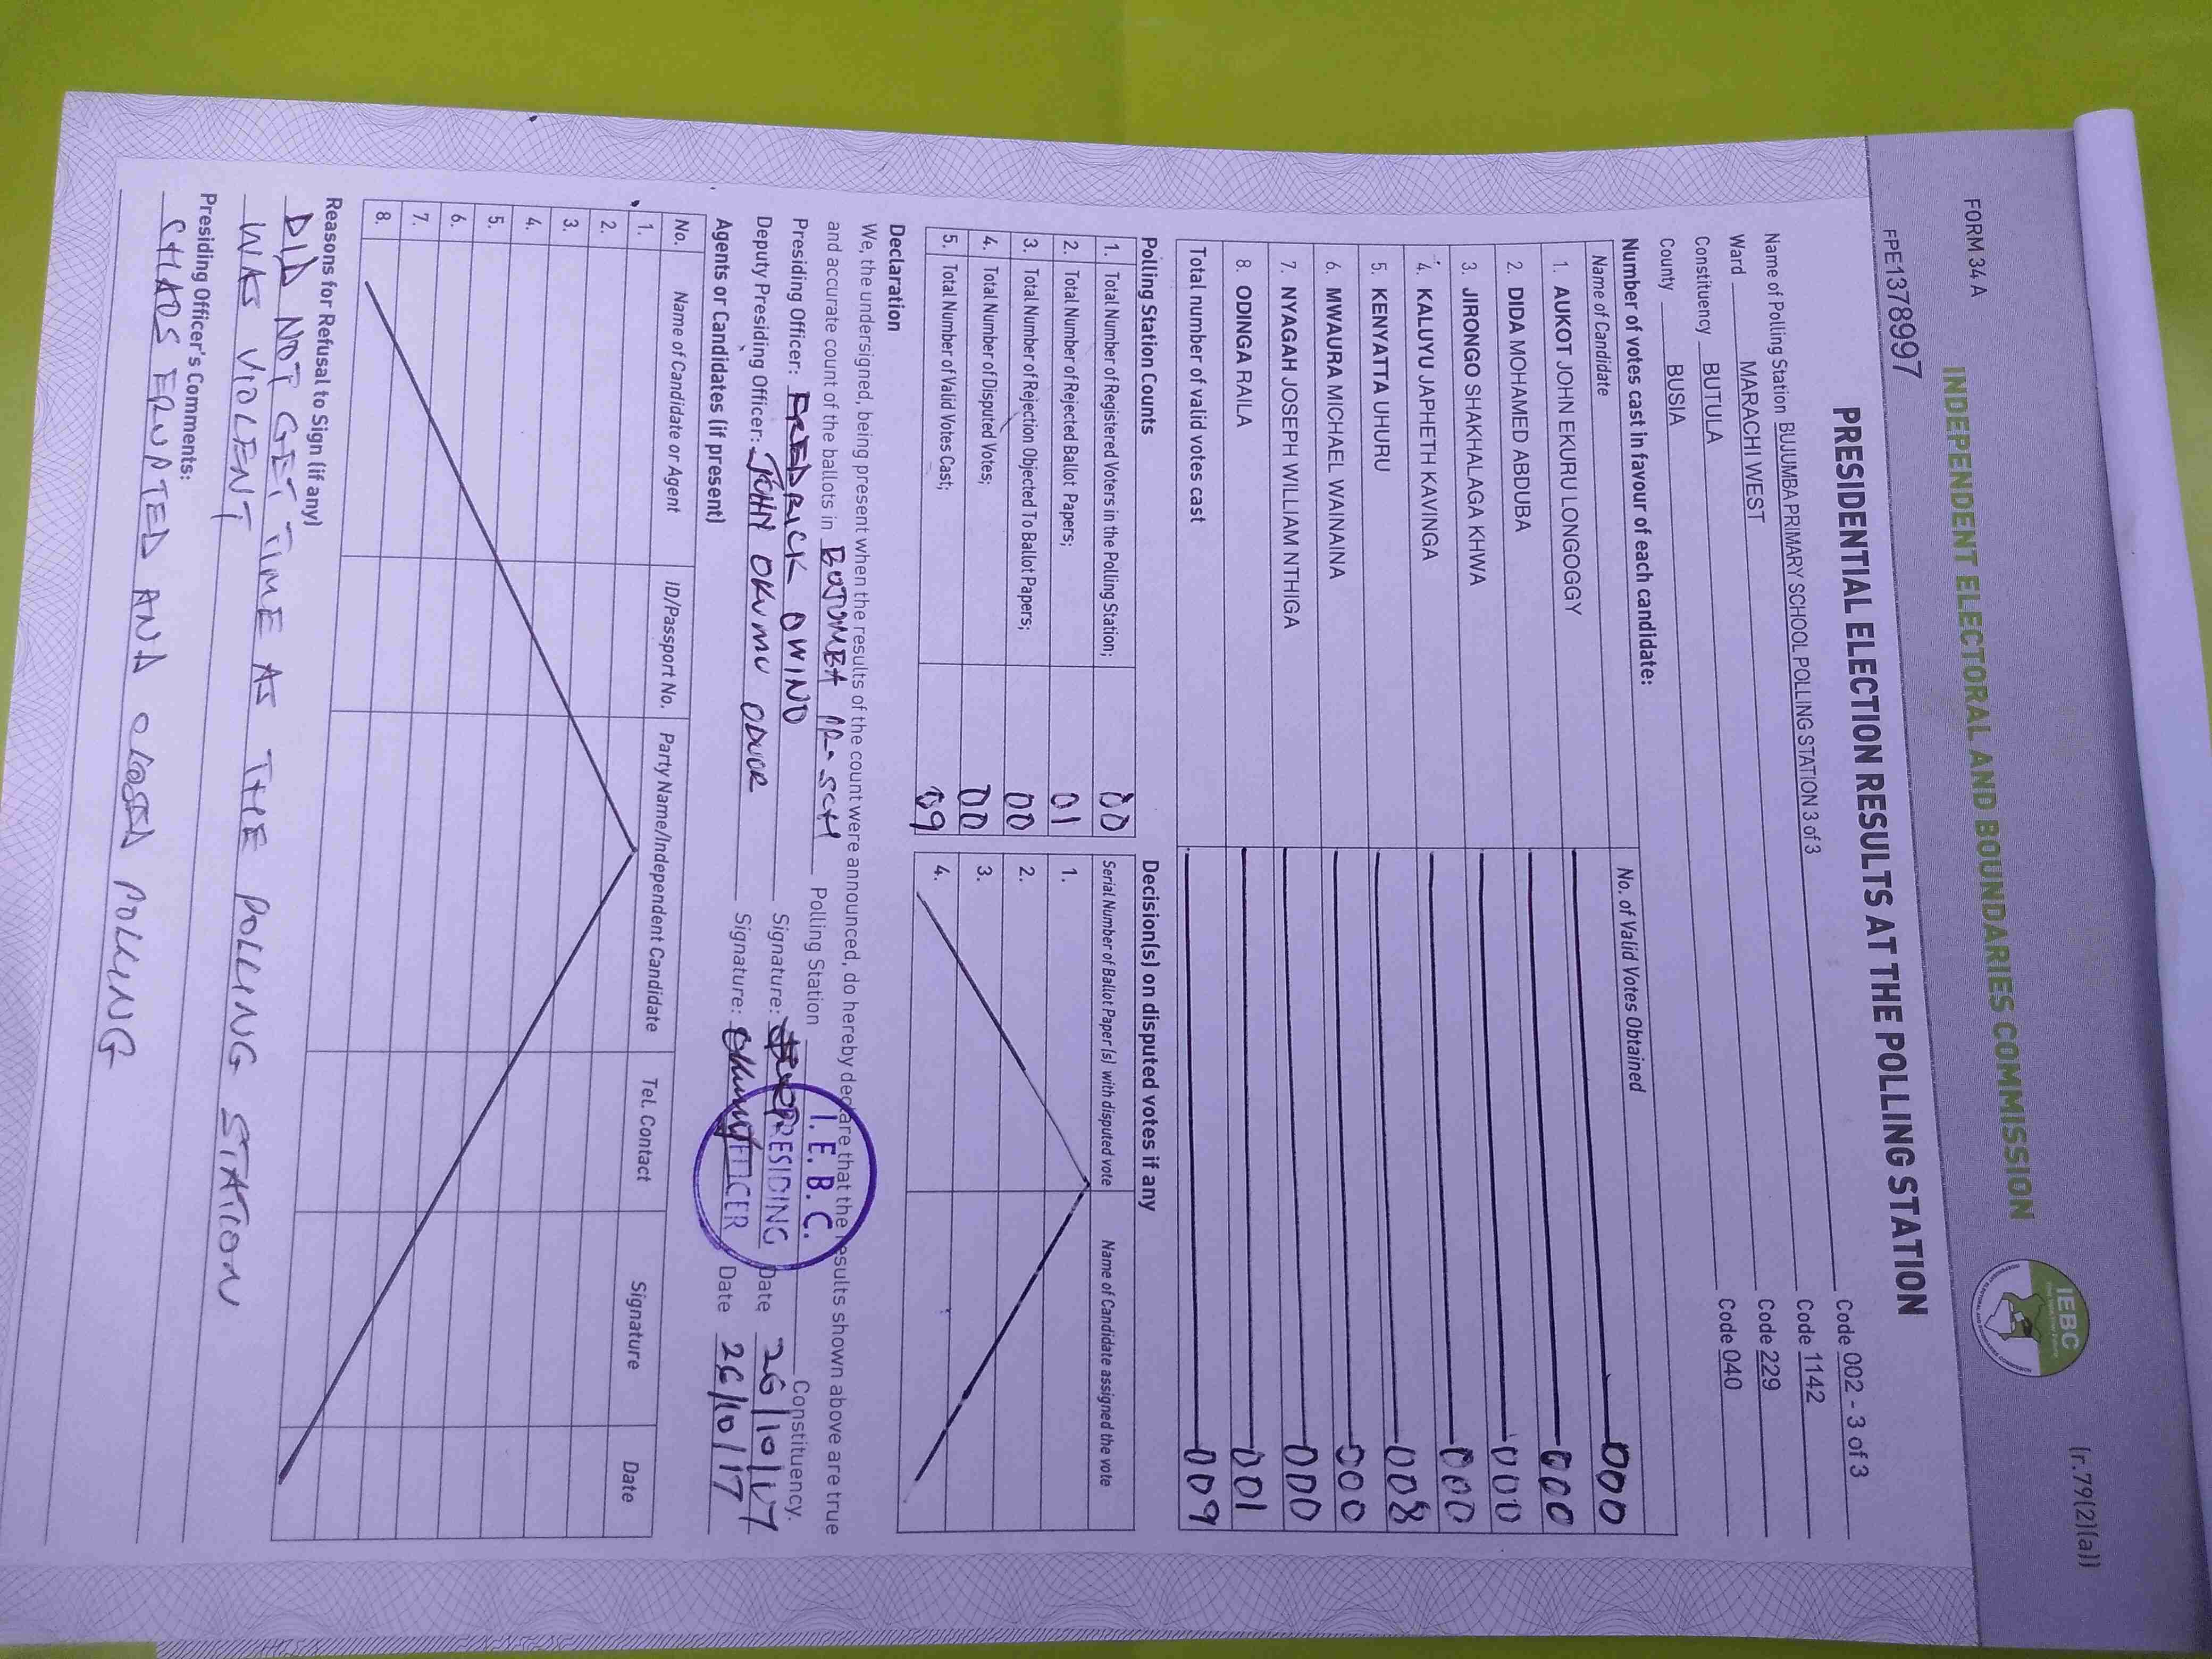 FORM 34 A
(r.79(2)(a))
INDEPENDENT ELECTORAL AND BOUNDARIES COMMISSION
IEBC
FPE1378997
PRESIDENTIAL ELECTION RESULTS AT THE POLLING STATION
Name of Polling Station BUJUMBA PRIMARY SCHOOL POLLING STATION 3 of 3 Code 002 - 3 of 3
Ward MARACHI WEST Code 1142
Constituency BUTULA Code 229
County BUSIA Code 040
Number of votes cast in favour of each candidate:
Name of Candidate No. of Valid Votes Obtained
1. AUKOT JOHN EKURU LONGOGGY 000
2. DIDA MOHAMED ABDUBA 000
3. JIRONGO SHAKHALAGA KHWA 000
4. KALUYU JAPHETH KAVINGA 000
5. KENYATTA UHURU 008
6. MWAURA MICHAEL WAINAINA 000
7. NYAGAH JOSEPH WILLIAM NTHIGA 000
8. ODINGA RAILA 001
Total number of valid votes cast 009
Polling Station Counts
1. Total Number of Registered Voters in the Polling Station; 00
2. Total Number of Rejected Ballot Papers; 01
3. Total Number of Rejection Objected To Ballot Papers; 00
4. Total Number of Disputed Votes; 00
5. Total Number of Valid Votes Cast; 09
Decision(s) on disputed votes if any
Serial Number of Ballot Paper (s) with disputed vote Name of Candidate assigned the vote
1.
2.
3.
4.
Declaration
We, the undersigned, being present when the results of the count were announced, do hereby declare that the results shown above are true
and accurate count of the ballots in BUJUMBA PR. SCH Polling Station Constituency.
Presiding Officer: FREDRICK OWINO Signature: Date 26/10/17
Deputy Presiding Officer: JOHN OKUMU ODUOR Signature: Date 26/10/17
I. E. B. C.
PRESIDING
OFFICER
Agents or Candidates (if present)
No. Name of Candidate or Agent ID/Passport No. Party Name/Independent Candidate Tel. Contact Signature Date
1.
2.
3.
4.
5.
6.
7.
8.
Reasons for Refusal to Sign (if any)
DID NOT GET TIME AS THE POLLING STATION
WAS VIOLENT
Presiding Officer's Comments:
CHAOS ERUPTED AND CLOSED POLLING